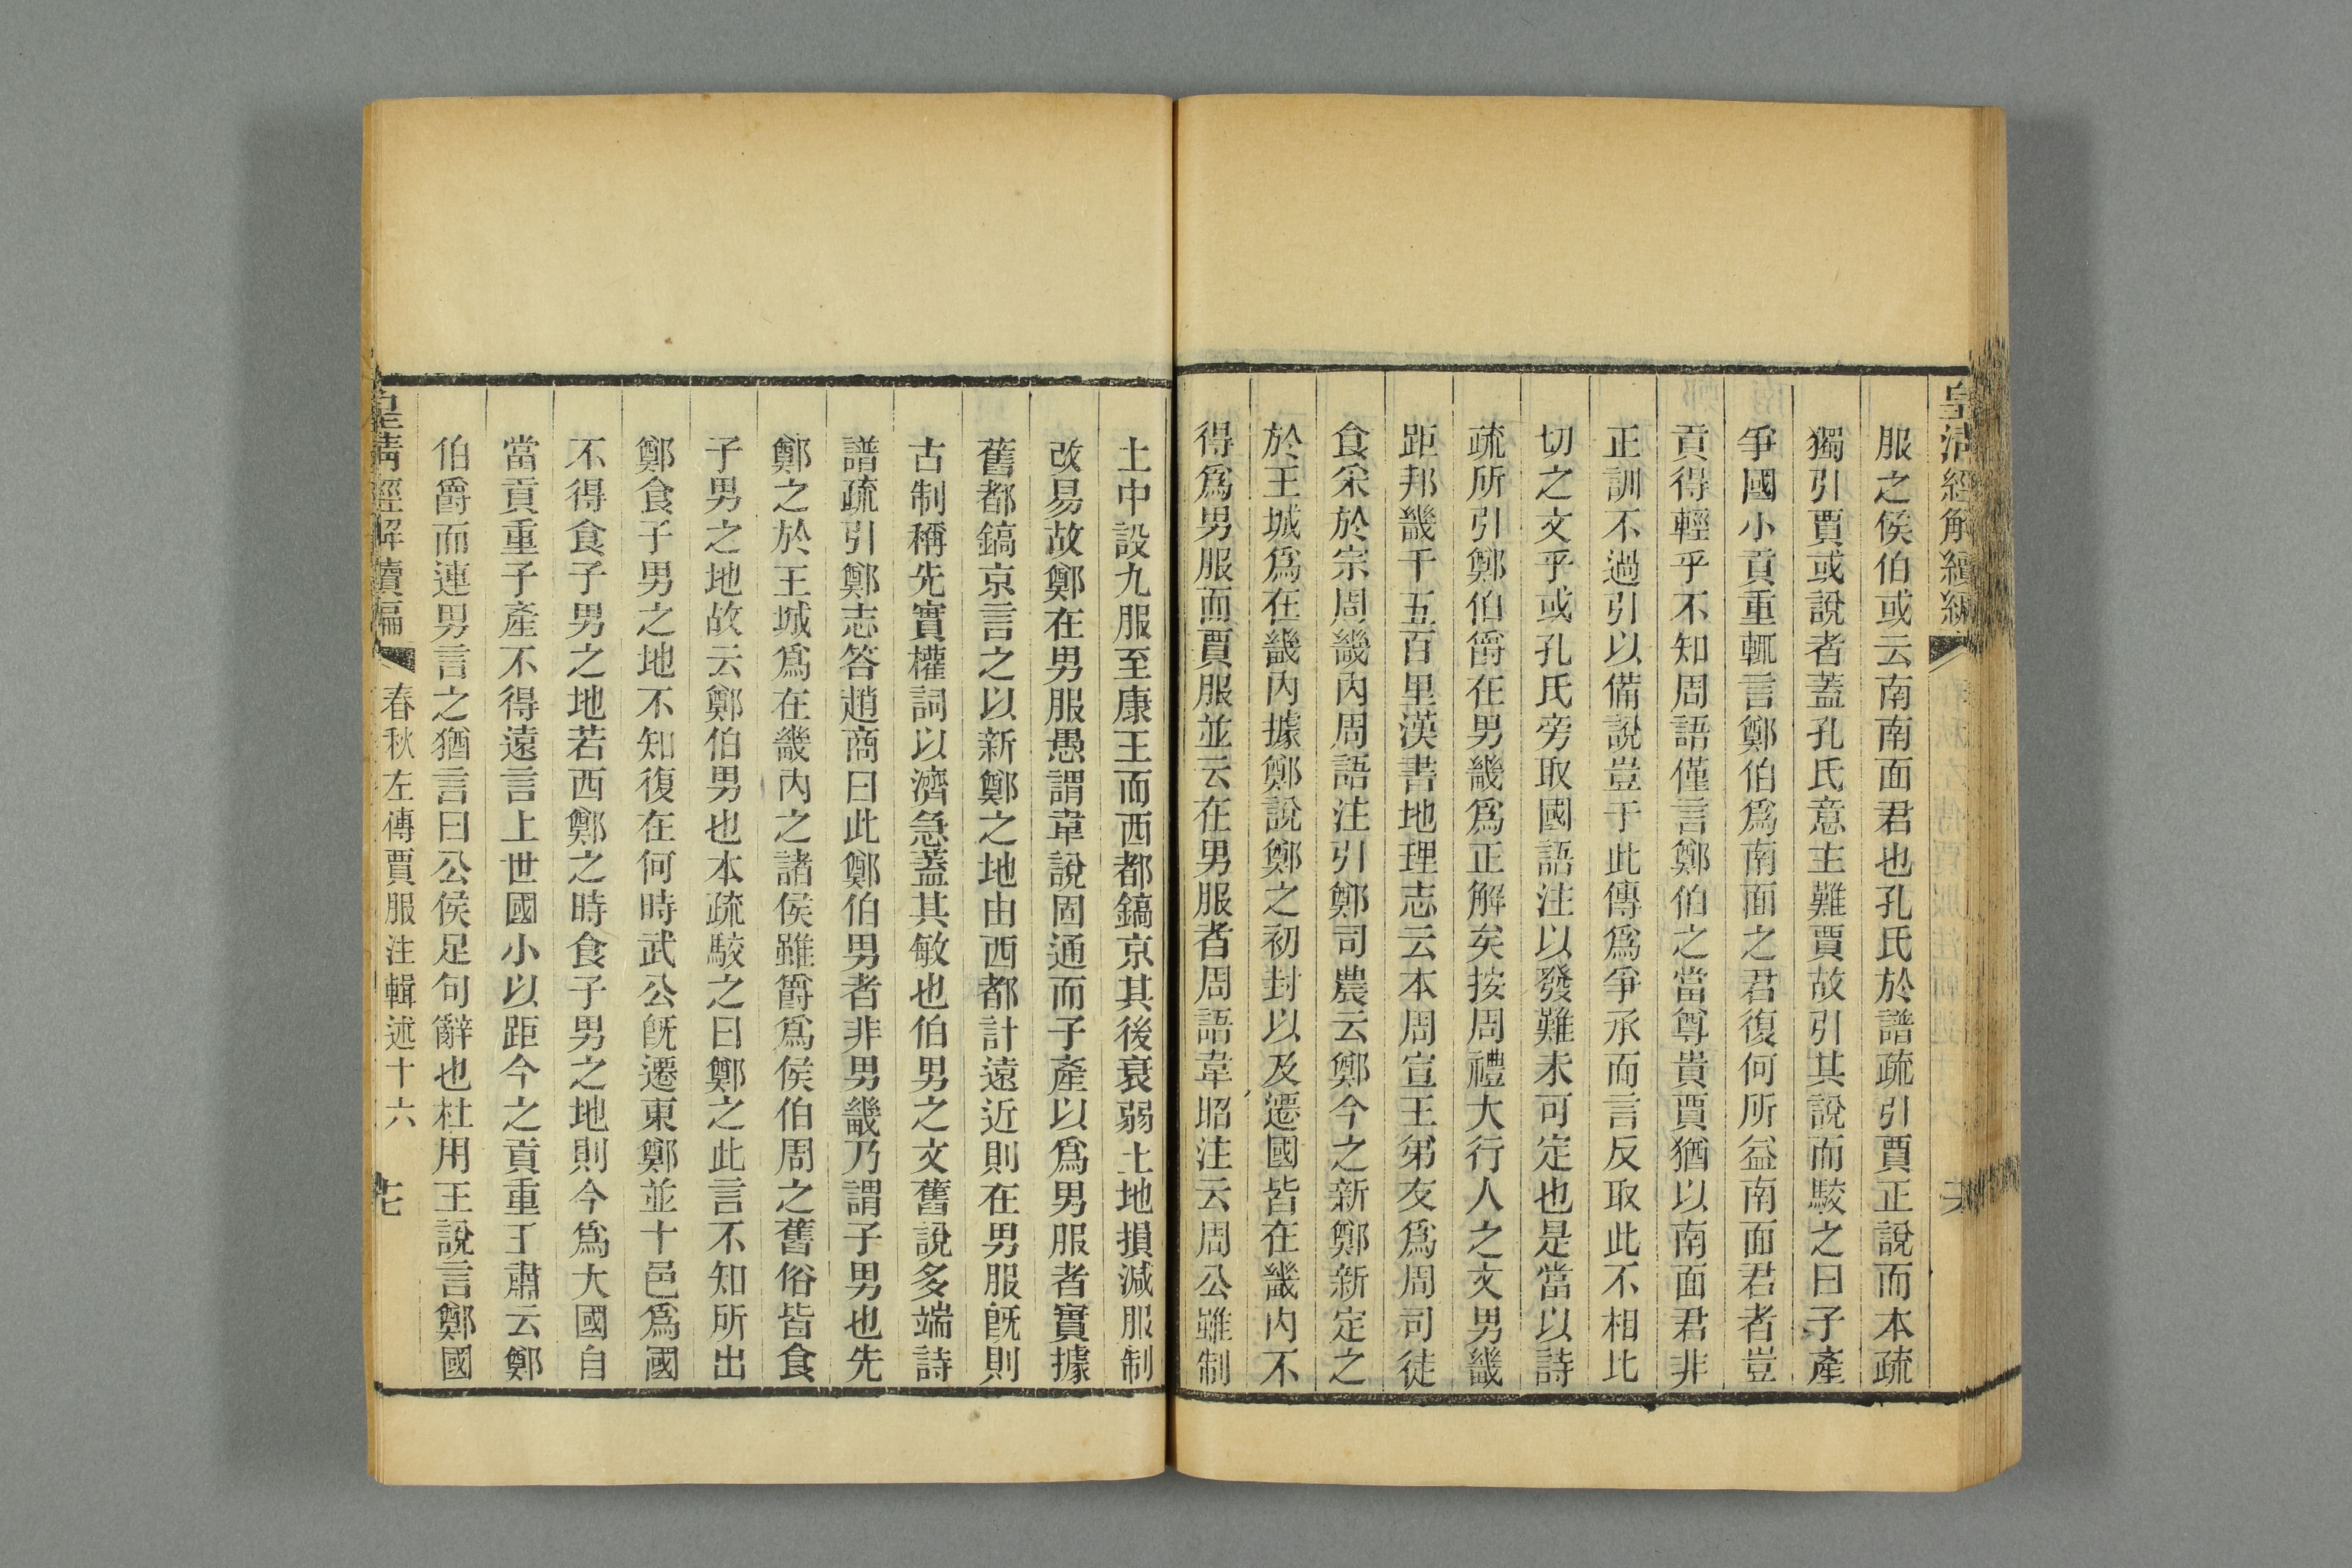 皇清經解續編
服之侯伯或云南南面君也孔氏於譜疏引賈正說而本疏
獨引賈或說者蓋孔氏意主難賈故引其說而駮之曰子產
爭國小貢重輒言鄭伯爲南面之君復何所益南面君者豈
貢得輕乎不知周語僅言鄭伯之當尊貴賈猶以南面君非
正訓不過引以備說豈于此傳爲爭承而言反取此不相比
切之文乎或孔氏旁取國語注以發難未可定也是當以詩
疏所引鄭伯爵在男畿爲正解矣按周禮大行人之文男畿
距邦畿千五百里漢書地理志云本周宣王弟友爲周司徒
食采於宗周畿內周語注引鄭司農云鄭今之新鄭新定之
於王城爲在畿內據鄭說鄭之初封以及遷國皆在畿內不
得爲男服而賈服並云在男服者周語韋昭注云周公雖制
土中設九服至康王而西都鎬京其後衰弱土地損減服制
改易故鄭在男服愚謂韋說固通而子產以爲男服者實據
舊都鎬京言之以新鄭之地由西都計遠近則在男服旣則
古制稱先實權詞以濟急蓋其敏也伯男之文舊說多端詩
譜疏引鄭志答趙商曰此鄭伯男者非男畿乃謂子男也先
鄭之於王城爲在畿內之諸侯雖爵爲侯伯周之舊俗皆食
子男之地故云鄭伯男也本疏駮之曰鄭之此言不知所出
鄭食子男之地不知復在何時武公旣遷東鄭並十邑爲國
不得食子男之地若西鄭之時食子男之地則今爲大國自
當貢重子產不得遠言上世國小以距今之貢重王肅云鄭
伯爵而連男言之猶言曰公侯足句辭也杜用王說言鄭國
皇清經解續編 春秋左傳賈服注輯述十六